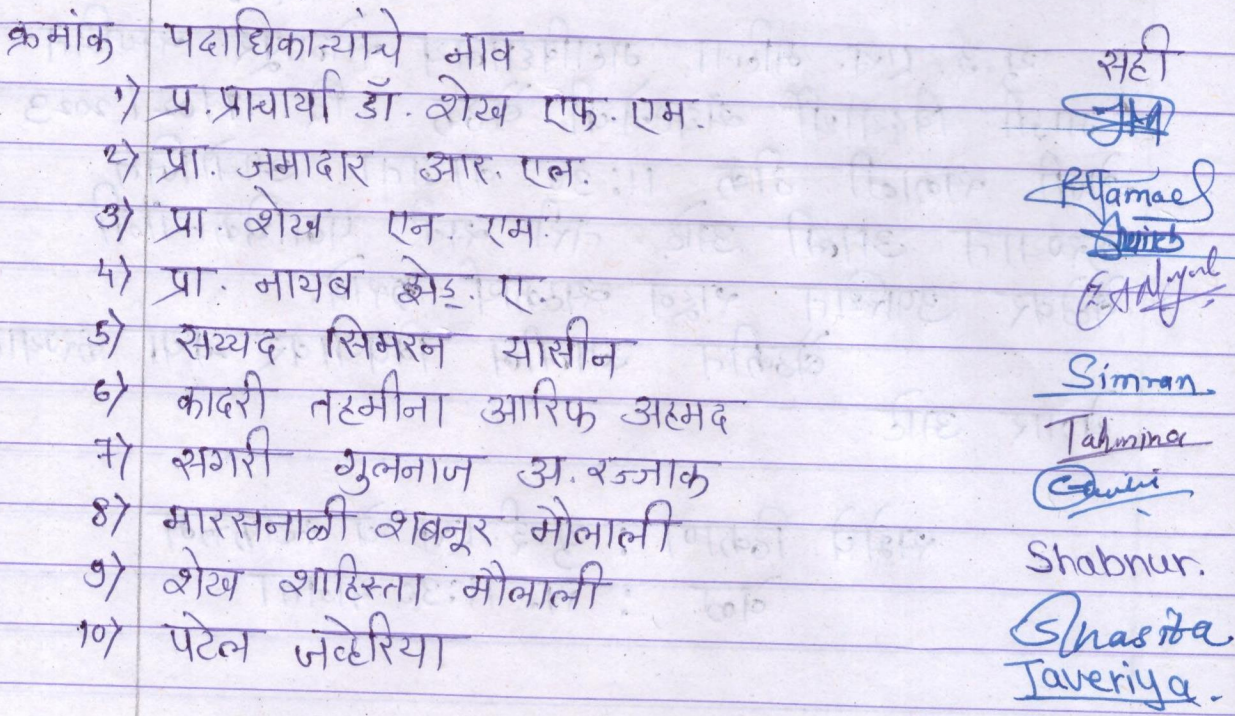 क्रमांक पदाधिकाऱ्यांचे नाव सही
१) प्र.प्राचार्या डॉ. शेख एफ. एम.
२) प्रा. जमादार आर. एल.
३) प्रा. शेख एन. एम
४) प्रा. नायब झेड. ए.
५) सय्यद सिमरन यासीन Simran
६) कादरी तहमीना आरिफ अहमद Tahmina
७) सगरी गुलनाज अ. रज्जाक
८) मारसनाळी शबनूर मौलाली Shabnur.
९) शेख शाहिस्ता मौलाली
१०) पटेल जव्हेरिया Javeriya.